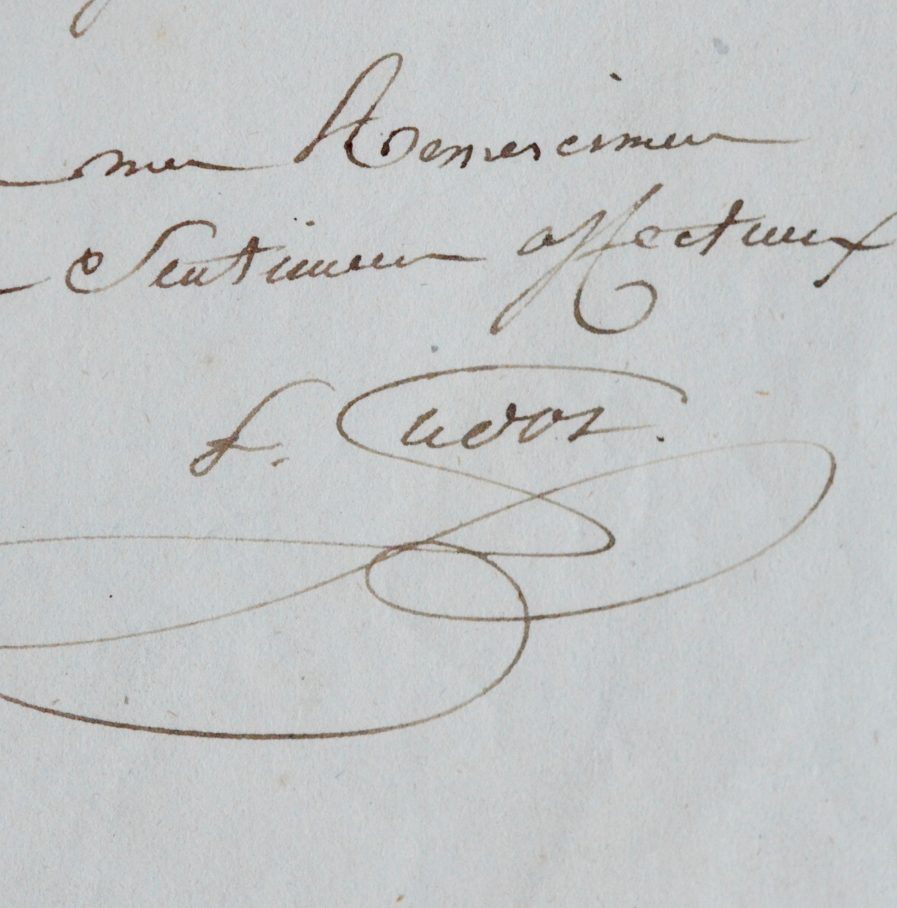 mes Remerciemens
Sentimens affectueux
f.